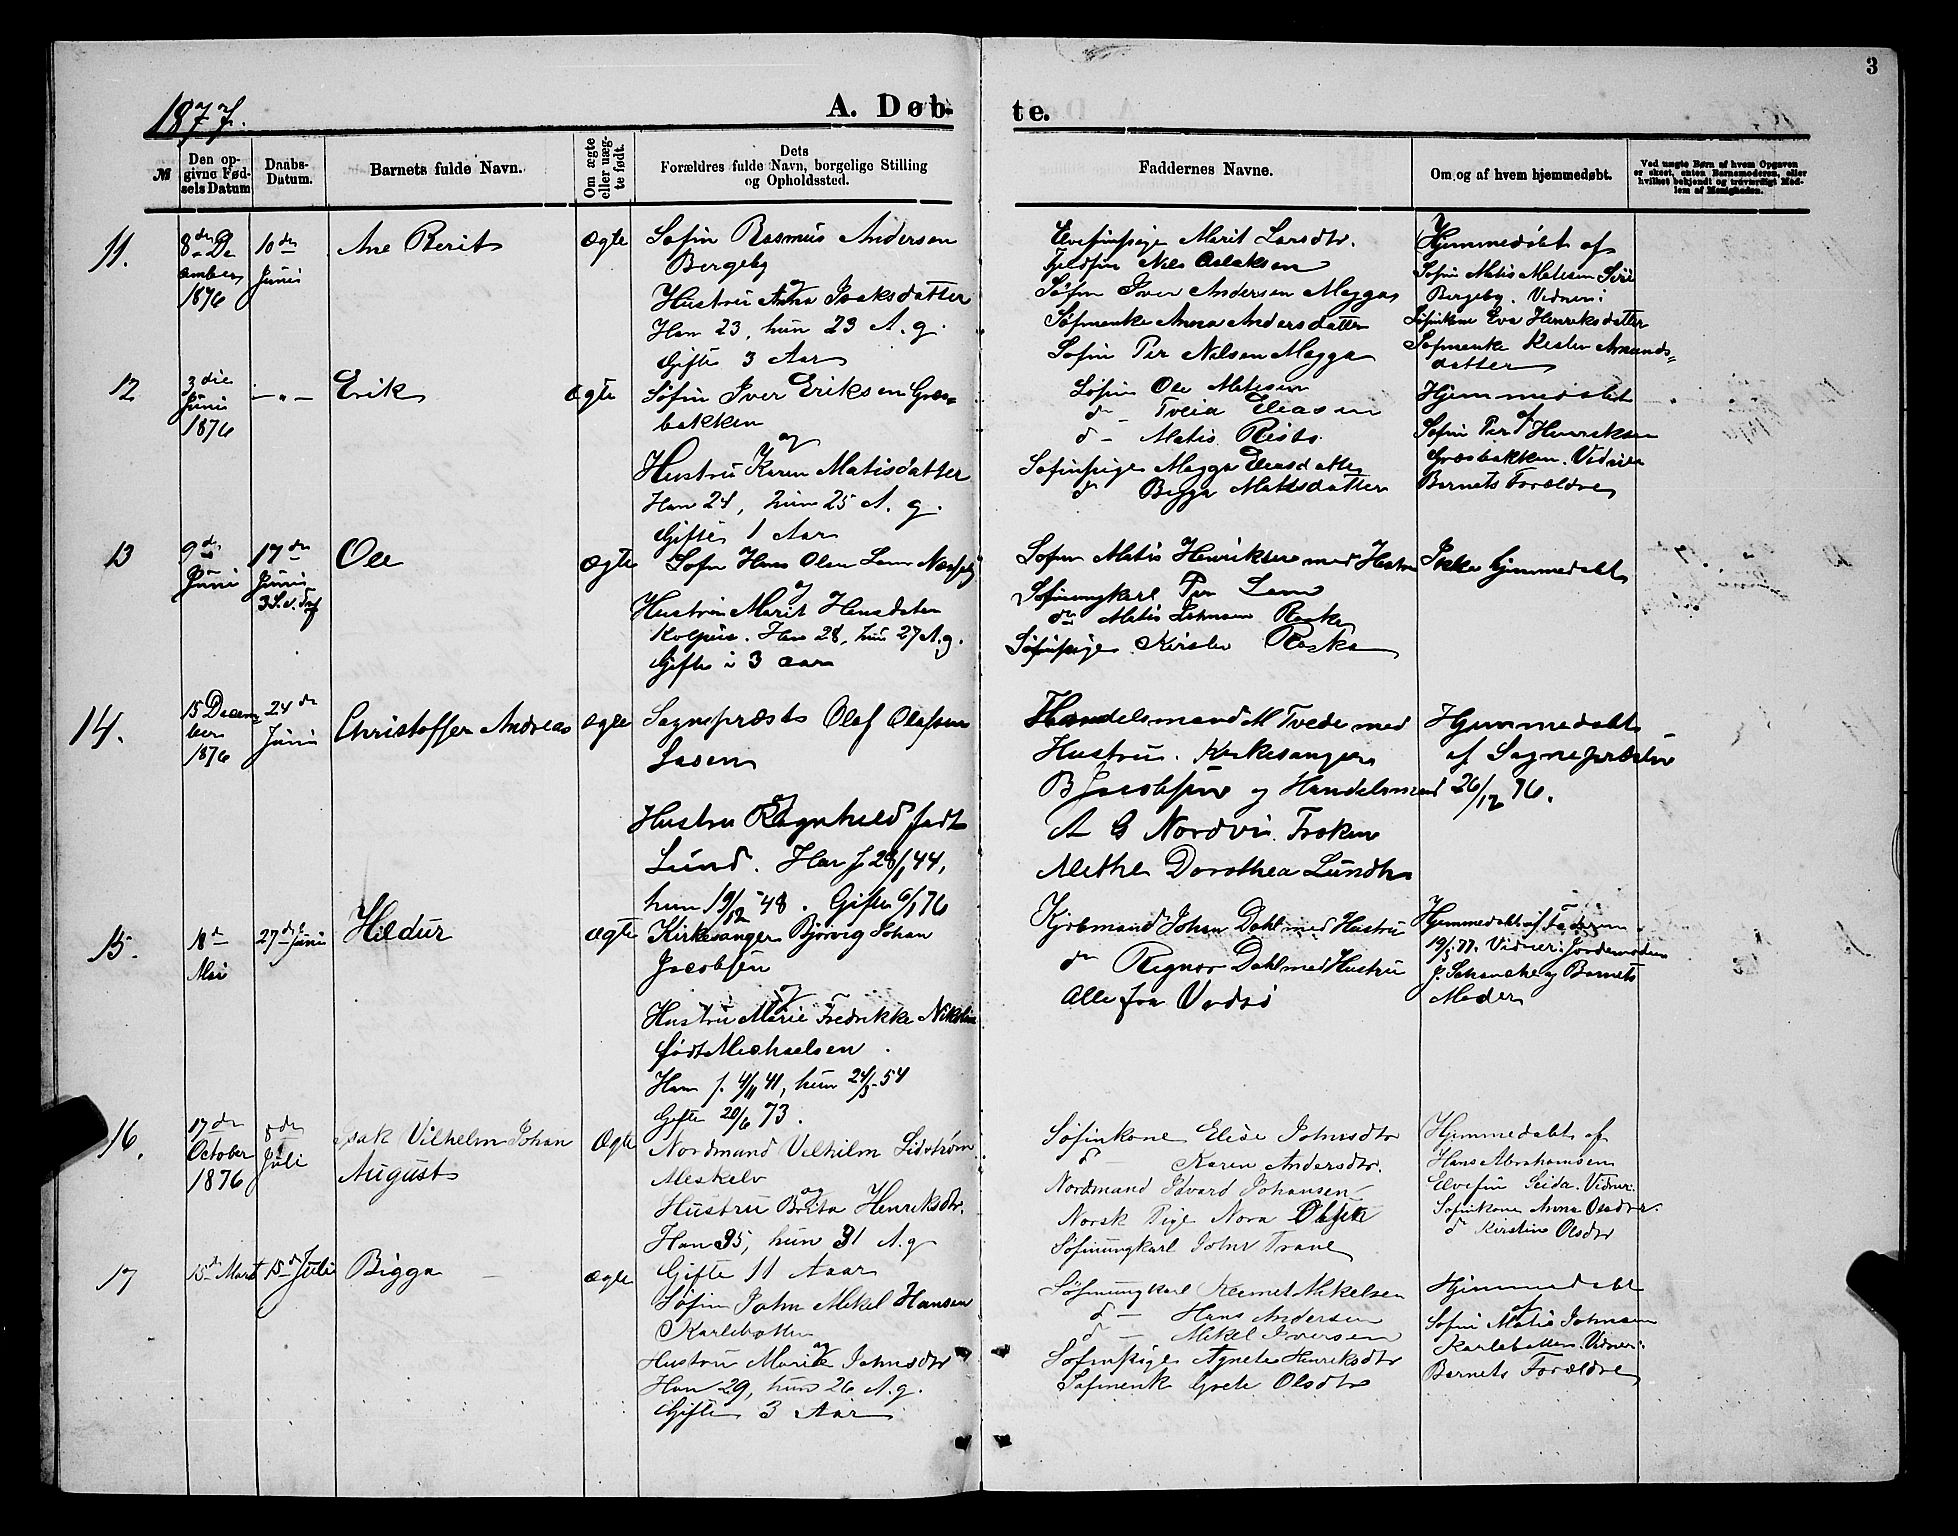 3
1877.
A. Døb-
te.
№
Den op-
givne Fød-
sels Datum
Daabs-
Datum.
Barnets fulde Navn.
Om ægte
eller uæg-
te født.
Dets
Forældres fulde Navn, borgelige Stilling
og Opholdssted.
Faddernes Navne.
Om og af hvem hjemmedøbt.
Ved uægte Børn af hvem Opgaven
er skeet, enten Barnemoderen, eller
hvilket bekjendt og troværdigt Med-
lem af Menigheden.
11.
8de De
cember
1876
10de
Juni
Ane Berit
Ægte
Søfin Rasmus Andersen
Bergeby
og
Hustru Anna Isaksdatter
Han 23, hun 23 A. g.
Gifte 3 Aar
Elvefinpige Marit Larsdtr.
Fjeldfin Nils Aslaksen
Søfin Iver Andersen Magga
Søfinenke Anna Andersdatter
Søfin Per Nilsen Magga
Hjemmedøbt af
Søfin Matis Matisen
Bergeby. Vidner:
Søfinkone Eva Henriksdatter
Søfinenke Kirsten Amunds-
datter
12
3die
Juni
1876
— „ —
Erik
Ægte
Søfin Iver Eriksen Græs-
bakken
og
Hustru Karen Matisdatter
Han 24, hun 25 A. g.
Gifte 1 Aar
Søfin Ole Matisen
do — Eliasen
do — Matis Risto
Søfinpige Magga Eliasdatter
do Bigga Matisdatter
Hjemmedøbt
af
Søfin Per Henriksen
Græsbakken. Vidner
Barnets Forældre
13
9de
Juni
17de
Juni
3 S. e. Tref
Ole
Ægte
Søfin Hans Olsen Næsseby
og
Hustru Marit Hansdatter
Han 28, hun 27 A. g.
Gifte i 3 Aar
Søfin Matis Henriksen med Hustru
Søfinungkarl Per
do Matis Johnsen
Søfinpige Kirsten
Ikke hjemmedøbt
14.
15 Decem-
ber
1876
24de
Juni
Christoffer Andreas
Ægte
Sognepræst Olaf Olafsen
og
Hustru Ragnhild født
Lund. Han f. 28/1 44,
hun 19/12 48. Gifte 6/1 76
Handelsmand M Tvede med
Hustru. Kirkesanger
B Jacobsen og Handelsmand
A G Nordvi. Frøken
Methe Dorothea Lund
Hjemmedøbt
af Sognepræsten
26/12 76.
15.
18de
Mai
27de Juni
Hildur
Ægte
Kirkesanger Bjørvig Johan
Jacobsen
og
Hustru Marie Fredrikke Nikoline
født Michaelsen.
Han f. 4/11 41, hun 24/3 54
Gifte 20/6 73.
Kjøbmand Johan Dahl med Hustru
do Regnor Dahl med Hustru
Alle fra Vadsø
Hjemmedøbt af Faderen
19/5 77. Vidner: Jordemoderen
J. Schanche og Barnets
Moder
16.
17de
October
1876
8de
Juli
Isak Vilhelm Johan
August
Ægte
Nordmand Vilhelm Sidstrøm
Meskelv
og
Hustru Brita Henriksdtr.
Han 35, hun 31 A. g
Gifte 11 Aar
Søfinkone Elise Johnsdtr
do — Karen Andersdtr.
Nordmand Edvard Johansen
Norsk Pige Nora Olsen
Søfinungkarl John Trane
Hjemmedøbt af
Hans Abrahamsen
Elvefin Seida. Vidner:
Søfinkone Anna Olsdtr.
do Kirstine Olsdtr
17
15de Marts
15de Juli
Bigga
Ægte
Søfin John Mikel Hansen
Karlebotten
og
Hustru Marit Johnsdtr
Han 29, hun 26 A. g.
Gifte 3 Aar
Søfinungkarl Klemet Mikelsen
do — Hans Andersen
do — Mikel Iversen
Søfinpige Agnete Henriksdtr
Søfinenk Grete Olsdtr
Hjemmedøbt
af
Søfin Matis Johnsen
Karlebotten. Vidner:
Barnets Forældre